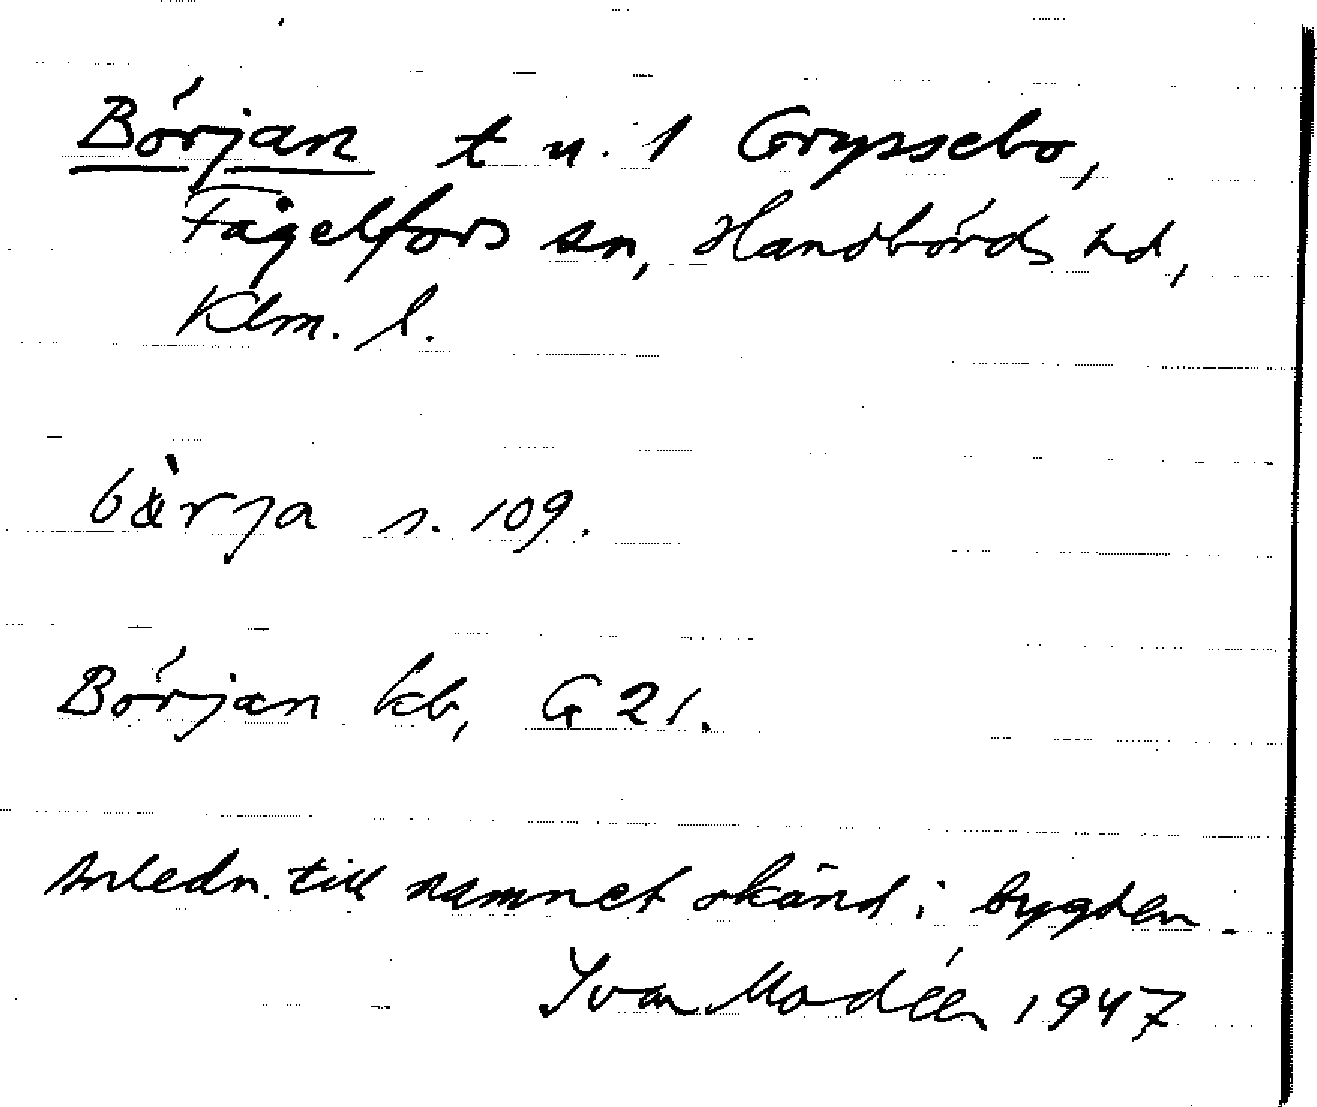 Början t u. 1 Gryssebo,
Fågelfors sn, Handbörds hd,
Klm. l.
bàrja s. 109.
Början kb, G 21.
Anledn. till namnet okänd i bygden.
Ivar Modéer 1947